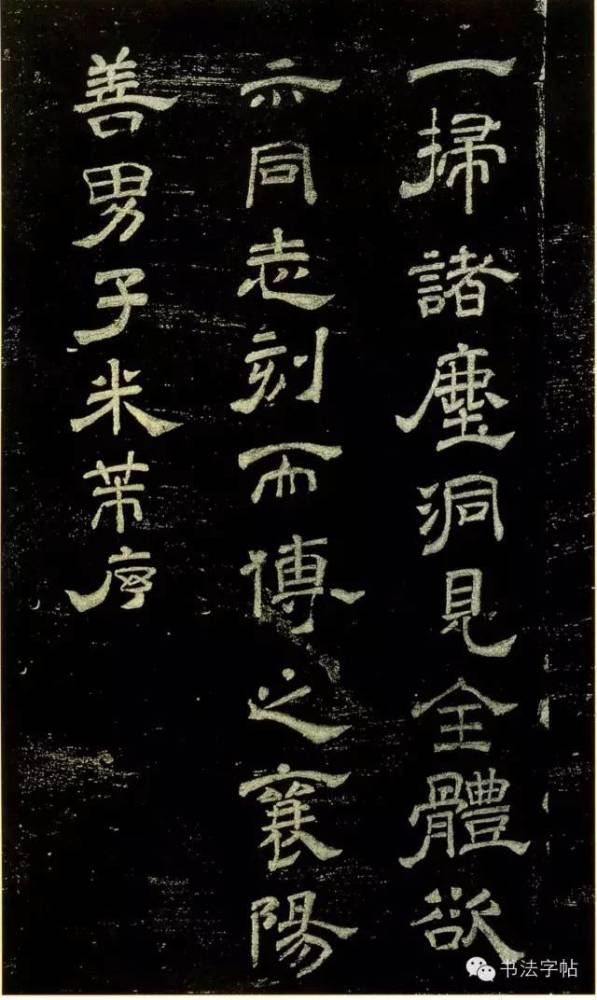 一掃諸塵洞見全體欲
示同志刻而傳之襄陽
善男子米芾序
书法字帖